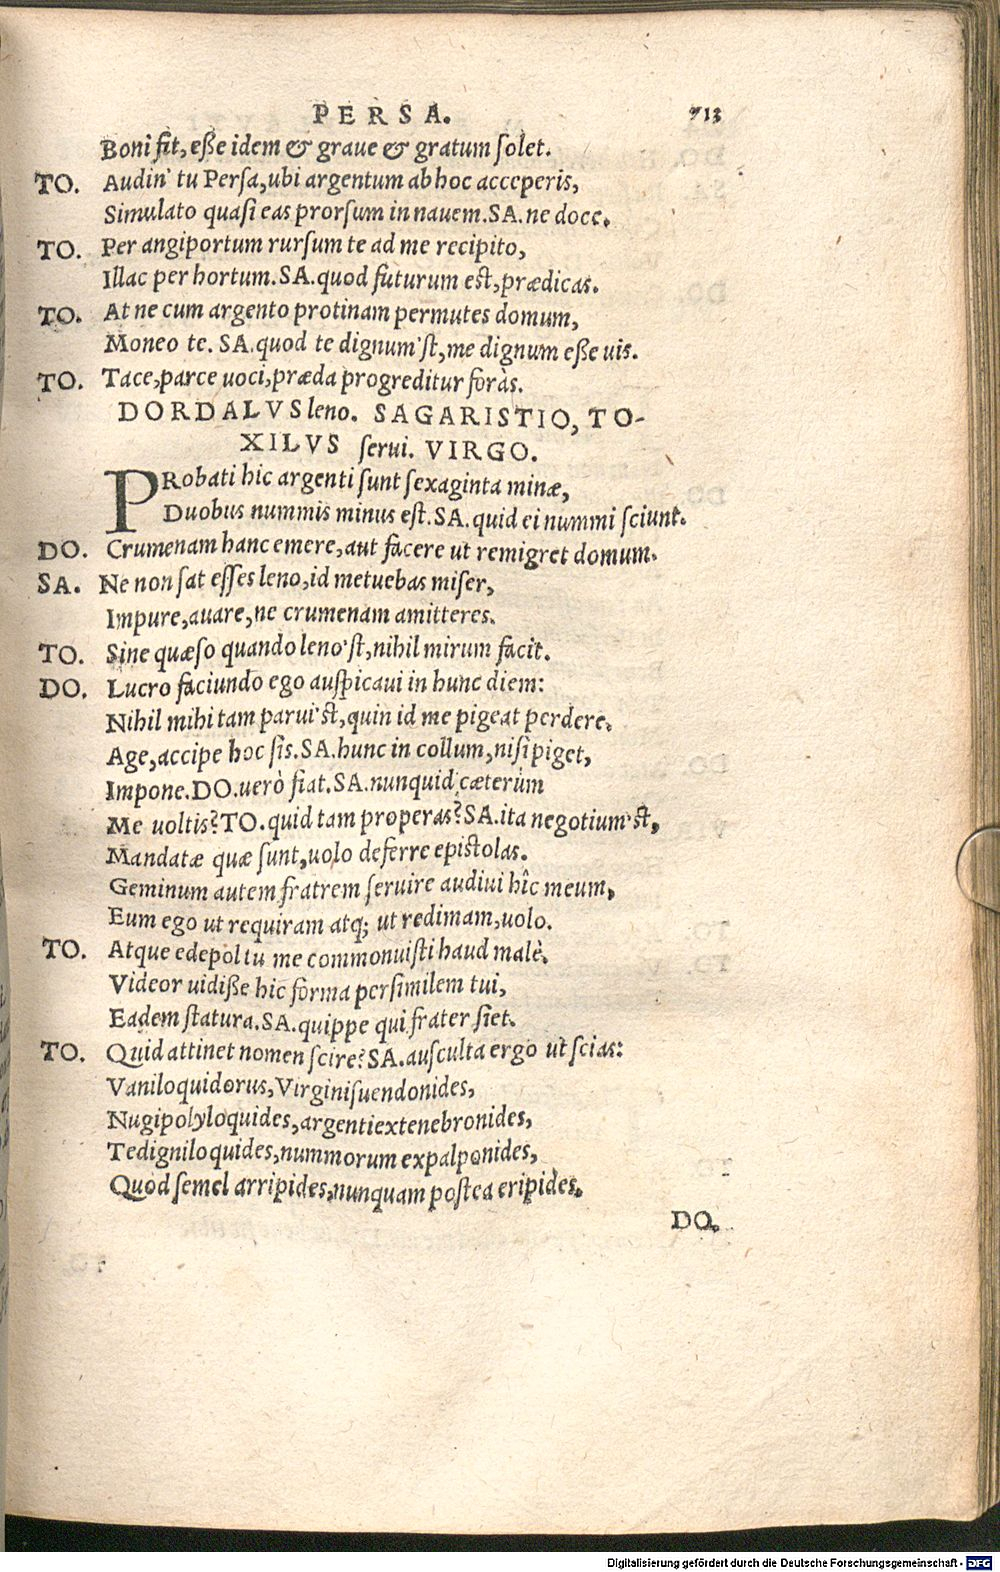 PERSA. 713
Boni fit, eſße idem & graue & gratum ſolet.
TO. Audin' tu Perſa, ubi argentum ab hoc acceperis,
Simulato quaſi eas prorſum in nauem. SA. ne doce.
TO. Per angiportum rurſum te ad me recipito,
Illac per hortum. SA. quod futurum eſt, prædicas.
TO. At ne cum argento protinam permutes domum,
Moneo te. SA. quod te dignum'ſt, me dignum eſße uis.
TO. Tace, parce uoci, præda progreditur foràs.
DORDALVS leno. SAGARISTIO, TO-
XILVS ſerui. VIRGO.
PRobati hic argenti ſunt ſexaginta minæ,
Duobus nummis minus eſt. SA. quid ei nummi ſciunt.
DO. Crumenam hanc emere, aut facere ut remigret domum.
SA. Ne non ſat eſſes leno, id metuebas miſer,
Impure, auare, ne crumenam amitteres.
TO. Sine quæſo quando leno'ſt, nihil mirum facit.
DO. Lucro faciundo ego auſpicaui in hunc diem:
Nihil mihi tam parui'ſt, quin id me pigeat perdere.
Age, accipe hoc ſis. SA. hunc in collum, niſi piget,
Impone. DO. uerò fiat. SA. nunquid cæterùm
Me uoltis? TO. quid tam properas? SA. ita negotium'ſt,
Mandatæ quæ ſunt, uolo deferre epiſtolas.
Geminum autem fratrem ſeruire audiui hîc meum,
Eum ego ut requiram atq; ut redimam, uolo.
TO. Atque edepol tu me commonuiſti haud malè.
Videor uidiſße hic forma perſimilem tui,
Eadem ſtatura. SA. quippe qui frater ſiet.
TO. Quid attinet nomen ſcire? SA. auſculta ergo ut ſcias:
Vaniloquidorus, Virginiſuendonides,
Nugipolyloquides, argentiextenebronides,
Tedigniloquides, nummorum expalponides,
Quod ſemel arripides, nunquam poſtea eripides.
DO.
Digitalisierung gefördert durch die Deutsche Forschungsgemeinschaft - DFG